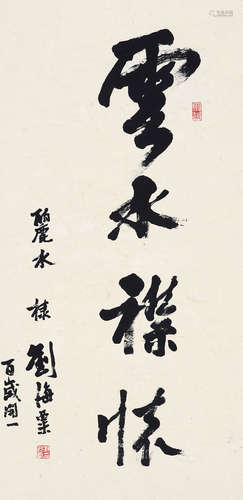 雲水襟懷
麗水 樣
劉海粟
百歲開一